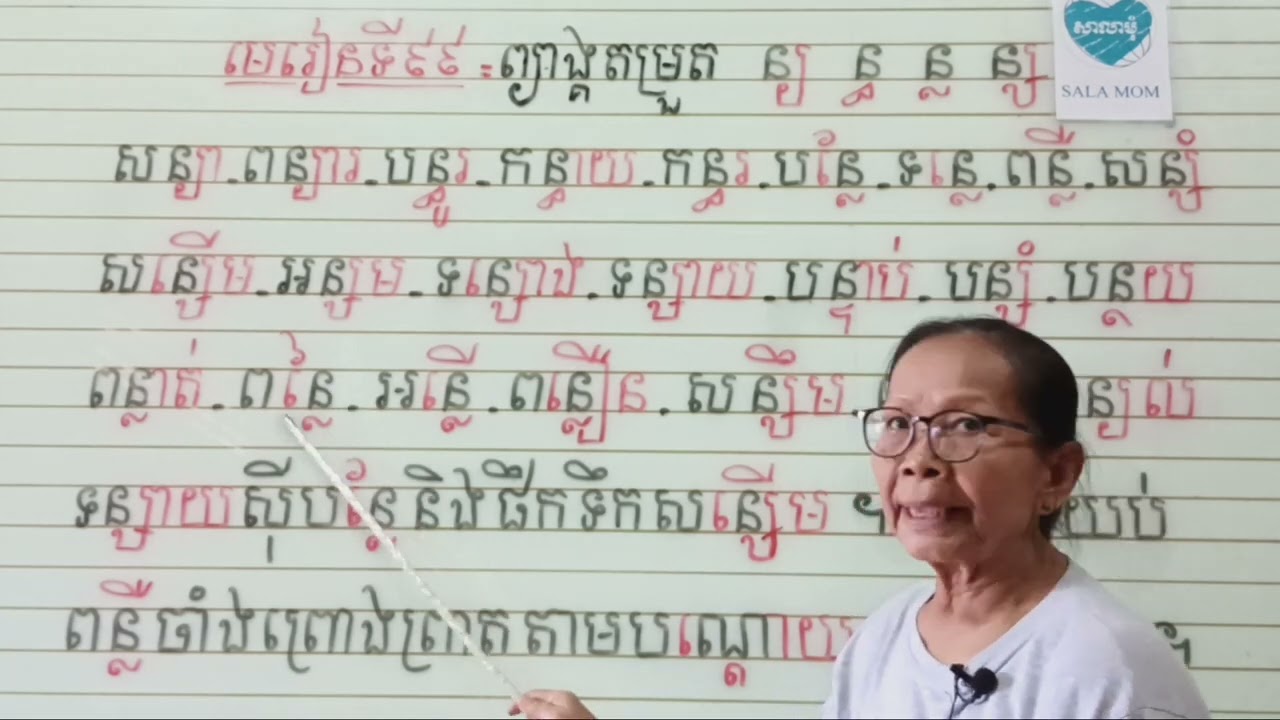 មេរៀនទី៩៩ ៖ ព្យាង្គតម្រួត ន្យ ន្ធ ន្ល ន្ស
សាលាមុំ
SALA MOM
សន្យា . ពន្យារ . បន្ធូរ . កន្ធាយ . កន្ធរ . បន្លែ . ទន្លេ . ពន្លឺ . សន្សំ
សន្សើម . អន្សម . ទន្សោង . ទន្សាយ . បន្ទាប់ . បន្សំ . បន្ថយ
ពន្លាត់ . ពន្លៃ . អន្លើ . ពន្លឿន . សន្សឹម ន្យល់
ទន្សាយស៊ីបន្លែនិងផឹកទឹកសន្សើម ។ យប់
ពន្លឺចាំងព្រោងព្រាតតាមបណ្ដោយ